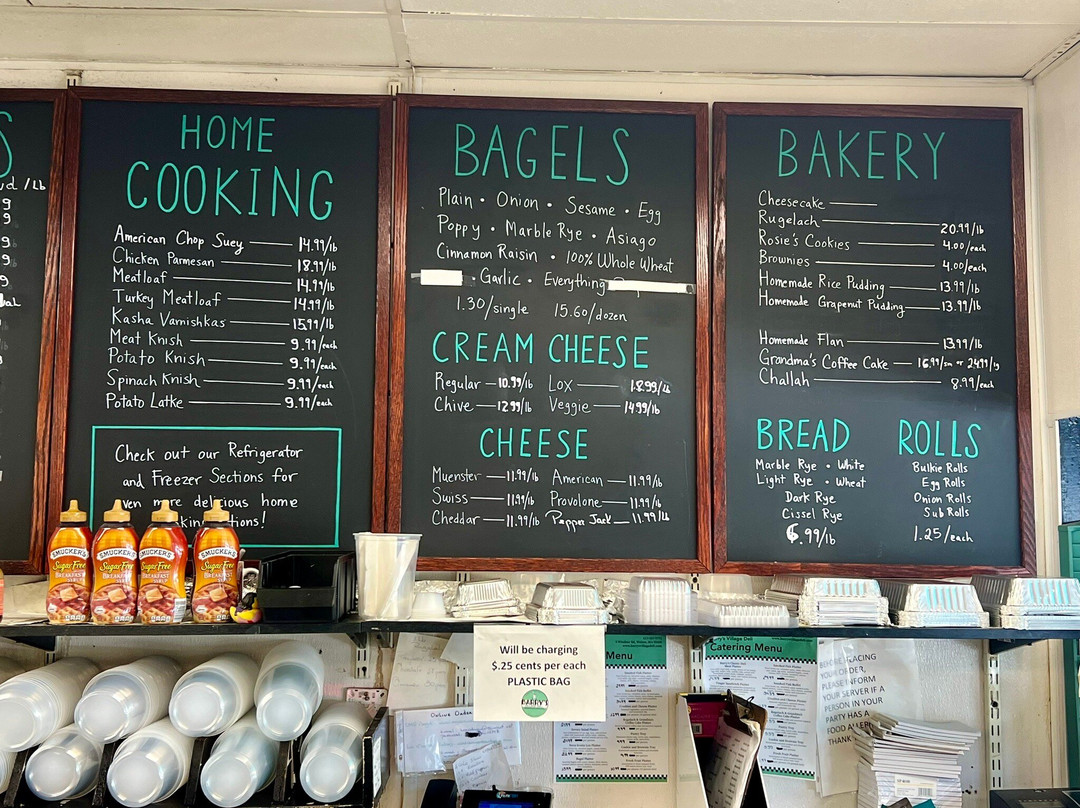 S
/Lb
9
9
9
9
9
HOME
COOKING
American Chop Suey 14.99/lb
Chicken Parmesan 18.99/lb
Meatloaf 14.99/lb
Turkey Meatloaf 14.99/lb
Kasha Varnishkas 15.99/lb
Meat Knish 9.99/each
Potato Knish 9.99/each
Spinach Knish 9.99/each
Potato Latke 9.99/each
Check out our Refrigerator
and Freezer Sections for
even more delicious home
BAGELS
Plain • Onion • Sesame • Egg
Poppy • Marble Rye • Asiago
Cinnamon Raisin • 100% Whole Wheat
• Garlic • Everything
1.30/single 15.60/dozen
CREAM CHEESE
Regular 10.99/lb Lox 18.99/Lb
Chive 12.99/lb Veggie 14.99/lb
CHEESE
Muenster 11.99/lb American 11.99/lb
Swiss 11.99/lb Provolone 11.99/lb
Cheddar 11.99/lb Pepper Jack 11.99/Lb
BAKERY
Cheesecake
Rugelach 20.99/lb
Rosie's Cookies 4.00/each
Brownies 4.00/each
Homemade Rice Pudding 13.99/lb
Homemade Grapenut Pudding 13.99/lb
Homemade Flan 13.99/lb
Grandma's Coffee Cake 16.99/sm or 24.99/lg
Challah 8.99/each
BREAD
Marble Rye • White
Light Rye • Wheat
Dark Rye
Cissel Rye
6.99/lb
ROLLS
Bulkie Rolls
Egg Rolls
Onion Rolls
Sub Rolls
1.25/each
SMUCKER'S
Sugar Free
BREAKFAST
SMUCKER'S
Sugar Free
BREAKFAST
SMUCKER'S
Sugar Free
BREAKFAST
SMUCKER'S
Sugar Free
BREAKFAST
Will be charging
$.25 cents per each
PLASTIC BAG
BARRY'S
Menu
Barry's Village Deli
Catering Menu
BEFORE PLACING
YOUR ORDER,
PLEASE INFORM
YOUR SERVER IF A
PERSON IN YOUR
PARTY HAS A
FOOD ALLERGY
THANK